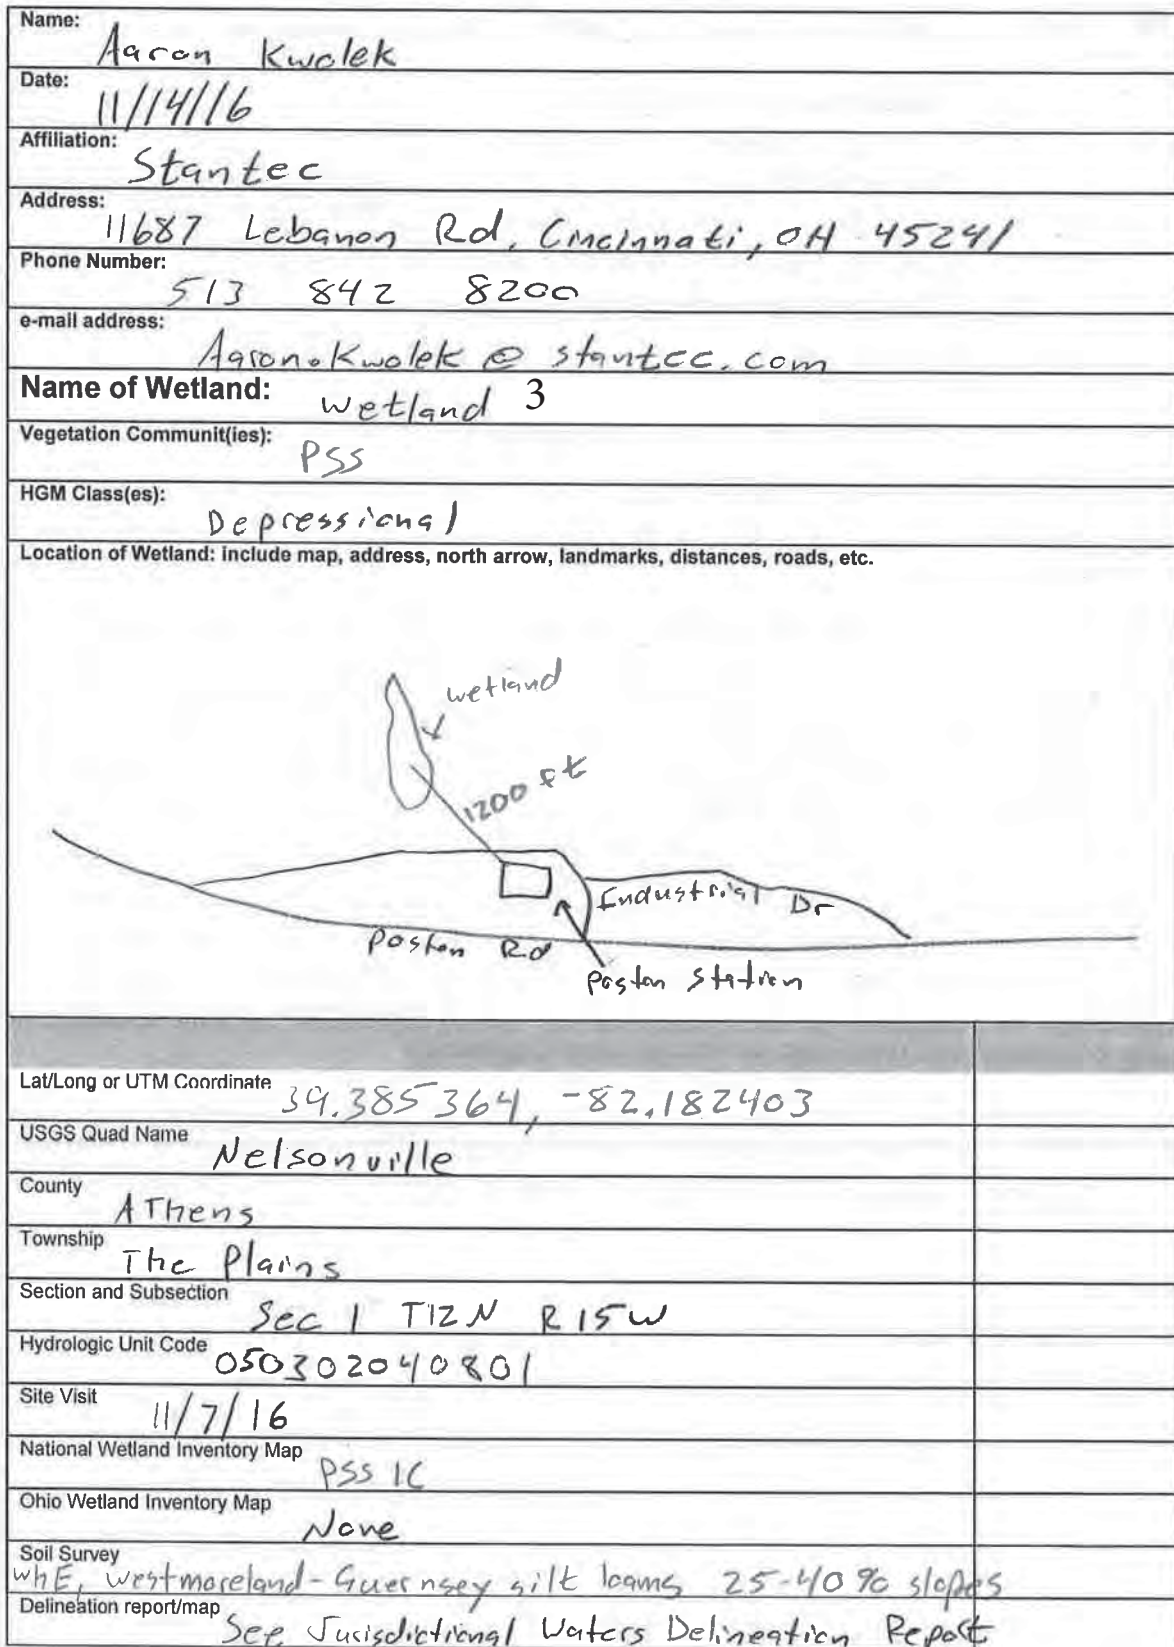 Name:
Aaron Kwolek
Date:
11/14/16
Affiliation:
Stantec
Address:
11687 Lebanon Rd, Cincinnati, OH 45241
Phone Number:
513 842 8200
e-mail address:
Aaron.Kwolek @ stantec.com
Name of Wetland: Wetland 3
Vegetation Communit(ies):
PSS
HGM Class(es):
Depressional
Location of Wetland: include map, address, north arrow, landmarks, distances, roads, etc.
wetland
1200 ft
Industrial Dr
Poston Rd
Poston Station
Lat/Long or UTM Coordinate 39.385364, -82.182403
USGS Quad Name
Nelsonville
County
Athens
Township
The Plains
Section and Subsection
Sec 1 T12N R15W
Hydrologic Unit Code
050302040801
Site Visit
11/7/16
National Wetland Inventory Map
PSS 1C
Ohio Wetland Inventory Map
None
Soil Survey
WhE, Westmoreland-Guernsey silt loams 25-40% slopes
Delineation report/map
See Jurisdictional Waters Delineation Report